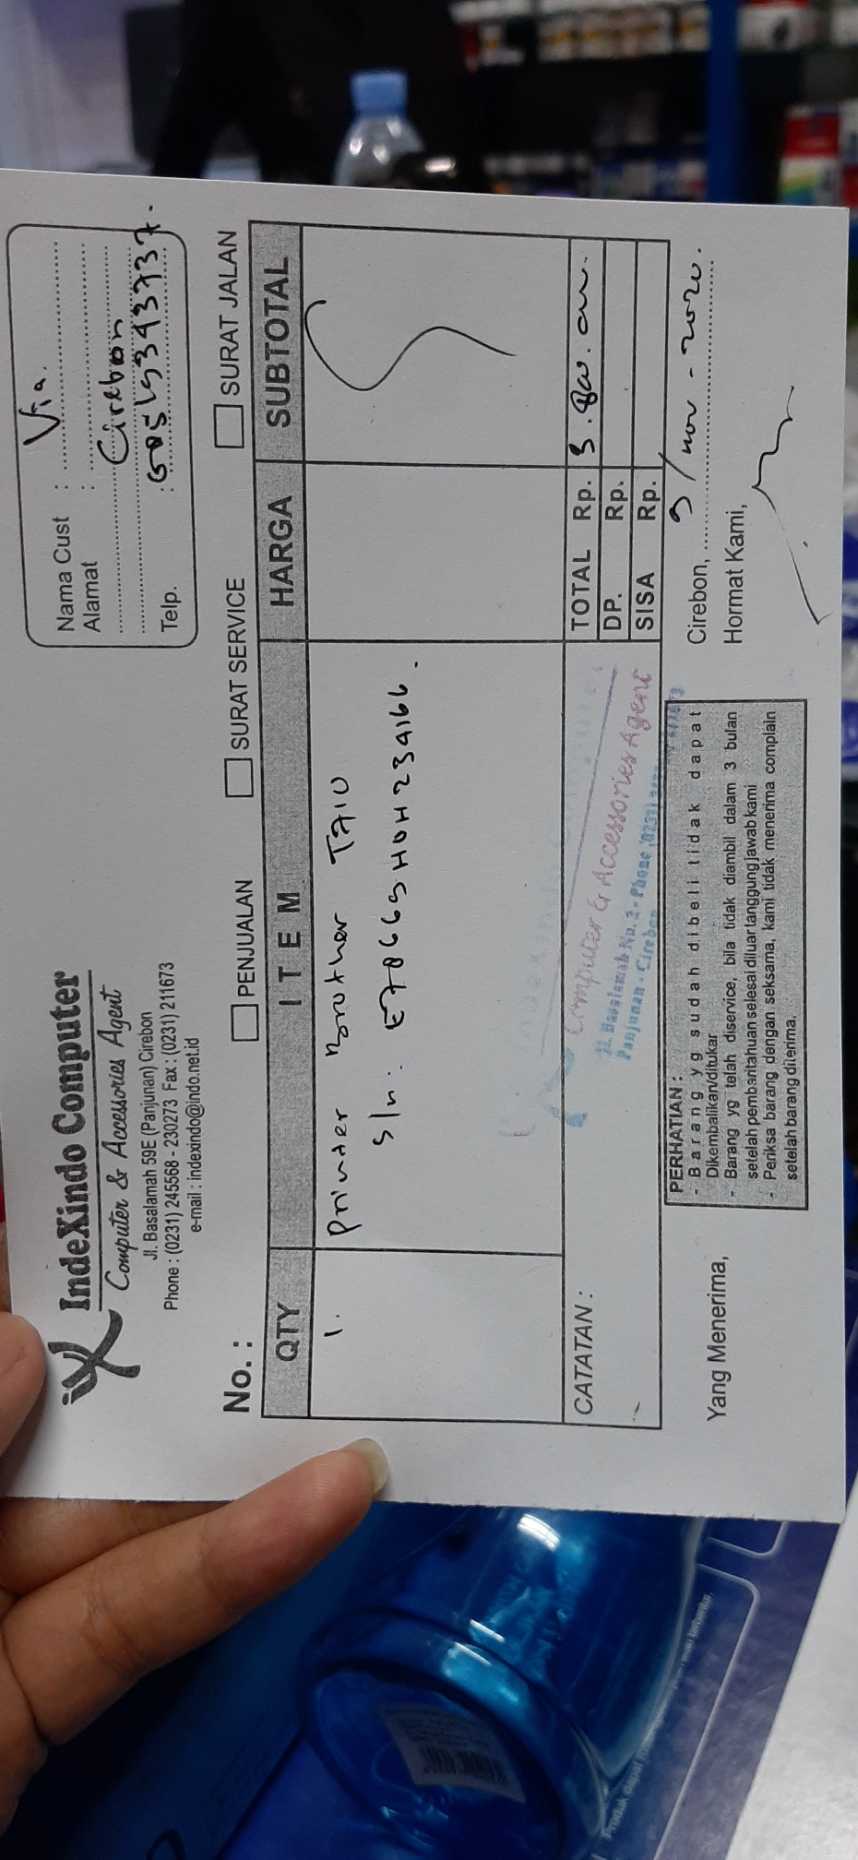 IndeXindo Computer
Computer & Accessories Agent
Jl. Basalamah 59E (Panjunan) Cirebon
Phone : (0231) 245568 - 230273 Fax : (0231) 211673
e-mail : indexindo@indo.net.id
Nama Cust : Via.
Alamat :
Cirebon
Telp. :
No. :
PENJUALAN
SURAT SERVICE
SURAT JALAN
QTY ITEM HARGA SUBTOTAL
1. Printer Brother T710
S/n : E78669H0H234166.
CATATAN :
Computer & Accessories Agent
Jl. Basalamah No.
Panjunan - Cirebon
TOTAL Rp.
DP. Rp.
SISA Rp.
PERHATIAN :
- Barang yg sudah dibeli tidak dapat
Dikembalikan/ditukar
- Barang yg telah diservice, bila tidak diambil dalam 3 bulan
setelah pembaritahuan selesai diluar tanggung jawab kami
- Periksa barang dengan seksama, kami tidak menerima complain
setelah barang diterima.
Yang Menerima,
Cirebon, 9/nov - 2020.
Hormat Kami,